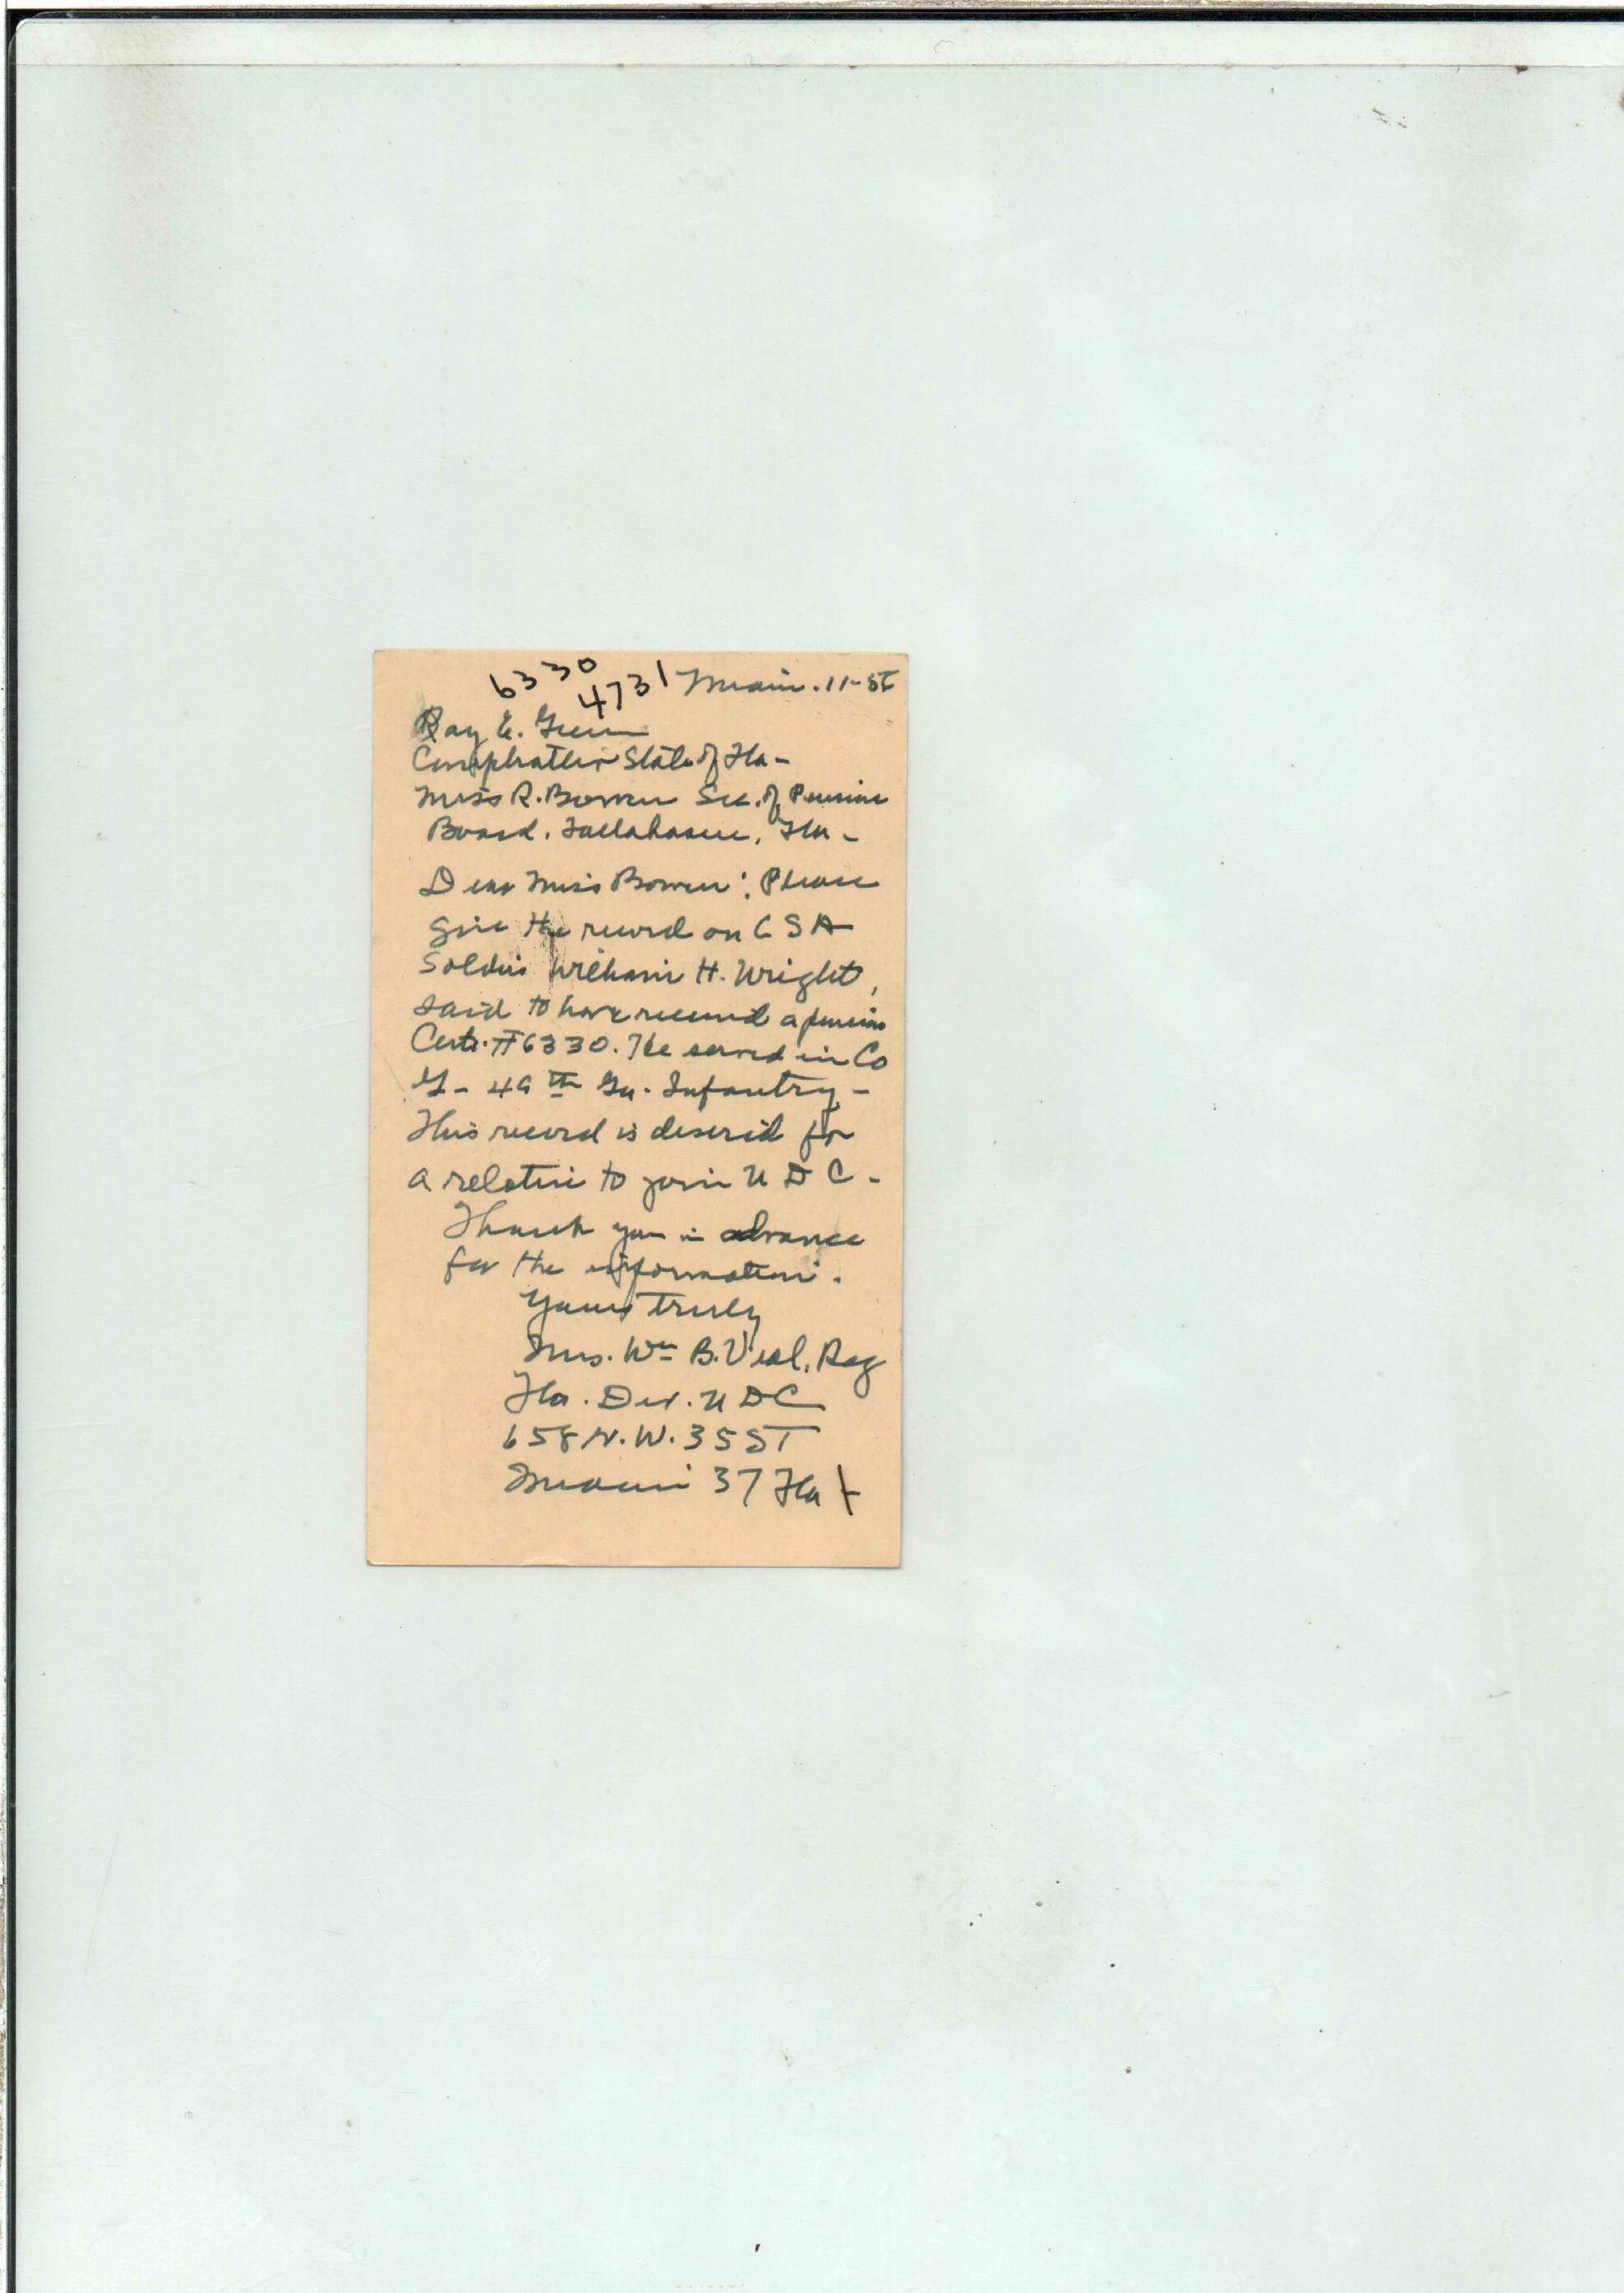 6330
4731 Miami. 11-
Ray E. Green
Comptroller State of Fla -
Miss R. Bowen Sec. of Pension
Board. Tallahassee, Fla -
Dear Miss Bowen: Please
give the record on C S A
Soldier William H. Wright,
said to have received a pension
Certi. #6330. He served in Co
G - 49th Ga. Infantry -
This record is desired for
a relative to join U D C -
Thank you in advance
for the information.
Yours truly
Mrs. Wm B. Veal, Reg
Fla. Div. U D C
658 N.W. 35 ST
Miami 37 Fla